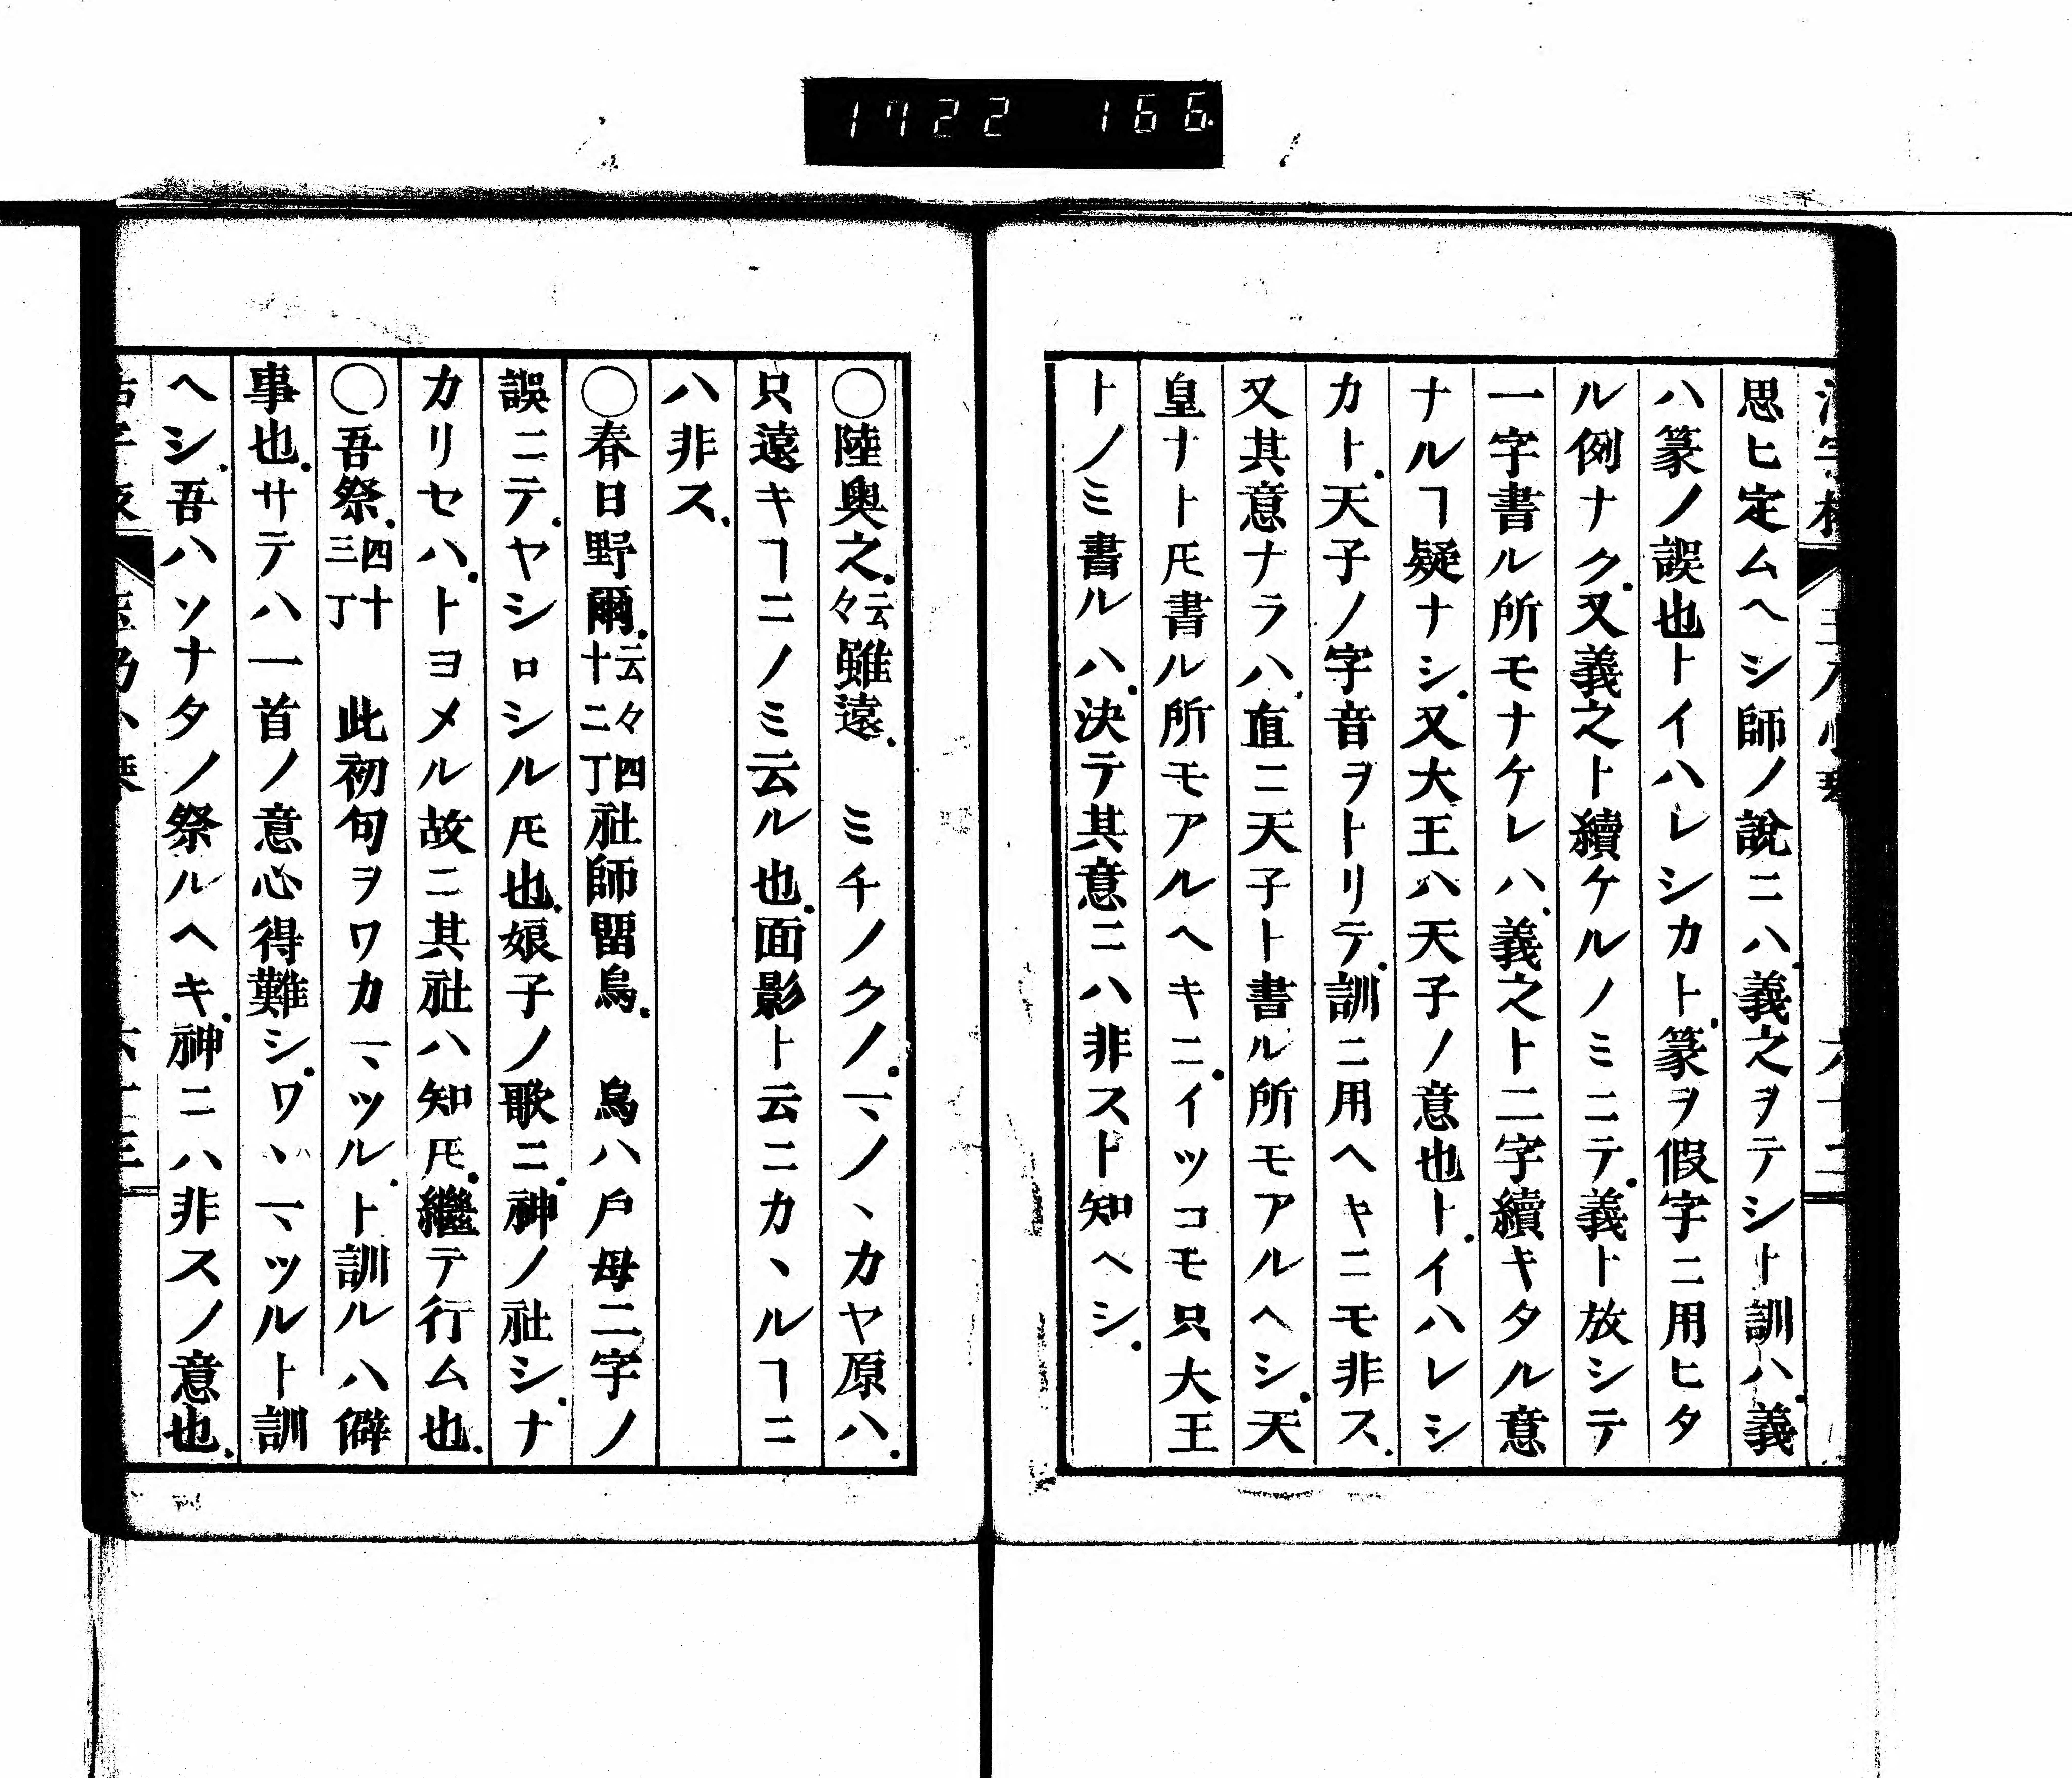 1722 166
思ヒ定ムヘシ師ノ說ニハ.義之ヲテシト訓ハ.義
ハ篆ノ誤也トイハレシカト.篆ヲ假字ニ用ヒタ
ル例ナク.又義之ト續ケルノミニテ.義ト放シテ
一字書ル所モナケレハ.義之ト二字續キタル意
ナルヿ疑ナシ.又大王ハ天子ノ意也ト.イハレシ
カト.天子ノ字音ヲトリテ.訓ニ用ヘキニモ非ス.
又其意ナラハ.直ニ天子ト書ル所モアルヘシ.天
皇ナトヒ書ル所モアルヘキニ.イツコモ只大王
トノミ書ルハ.決テ其意ニハ非スト知ヘシ.
〇陸奥之.云々雖遠.　ミチノクノ.マノヽカヤ原ハ.
只遠キヿニノミ云ル也.面影ト云ニカヽルヿニ
ハ非ス.
〇春日野爾.云々四十二丁社師留烏.　烏ハ戶母二字ノ
誤ニテ.ヤシロシル𪜈也.娘子ノ歌ニ.神ノ社シ.ナ
カリセハ.トヨメル故ニ其社ハ知𪜈.繼テ行ム也.
〇吾祭.四十三丁　此初句ヲワカマツル.ト訓ルハ僻
事也.サテハ一首ノ意心得難シ.ワヽマツルト訓
ヘシ.吾ハソナタノ祭ルヘキ.神ニハ非スノ意也.